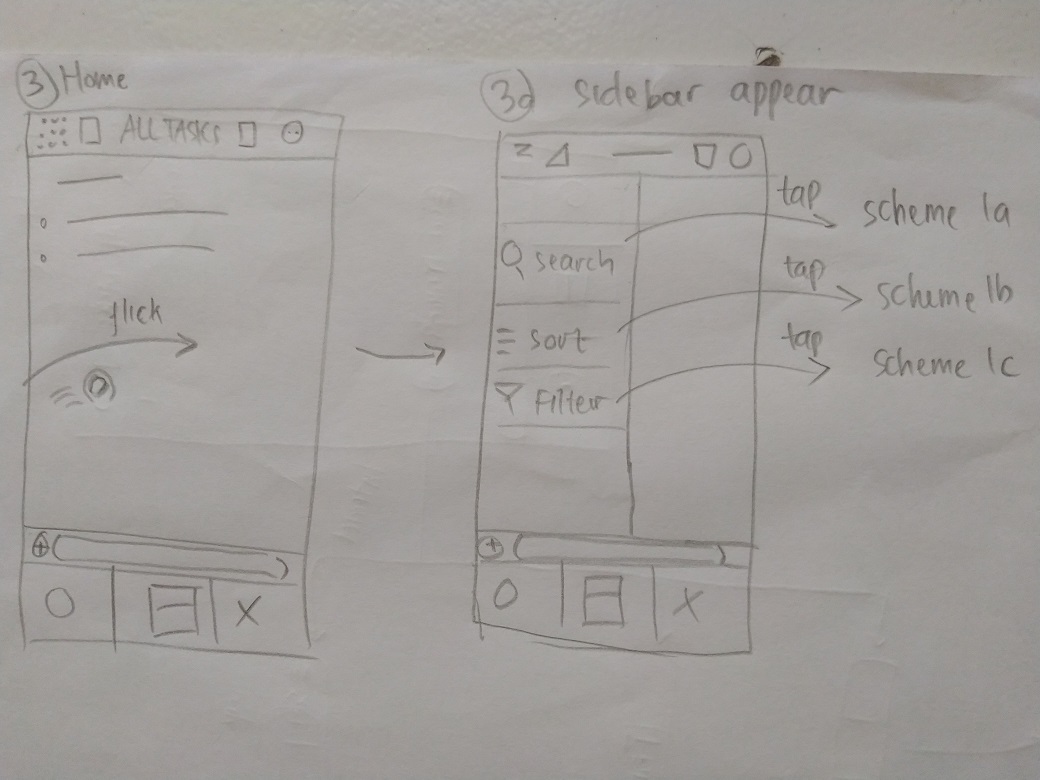 3 Home
ALL TASKS
flick
3a sidebar appear
search
sort
Filter
tap
scheme 1a
tap
scheme 1b
tap
scheme 1c